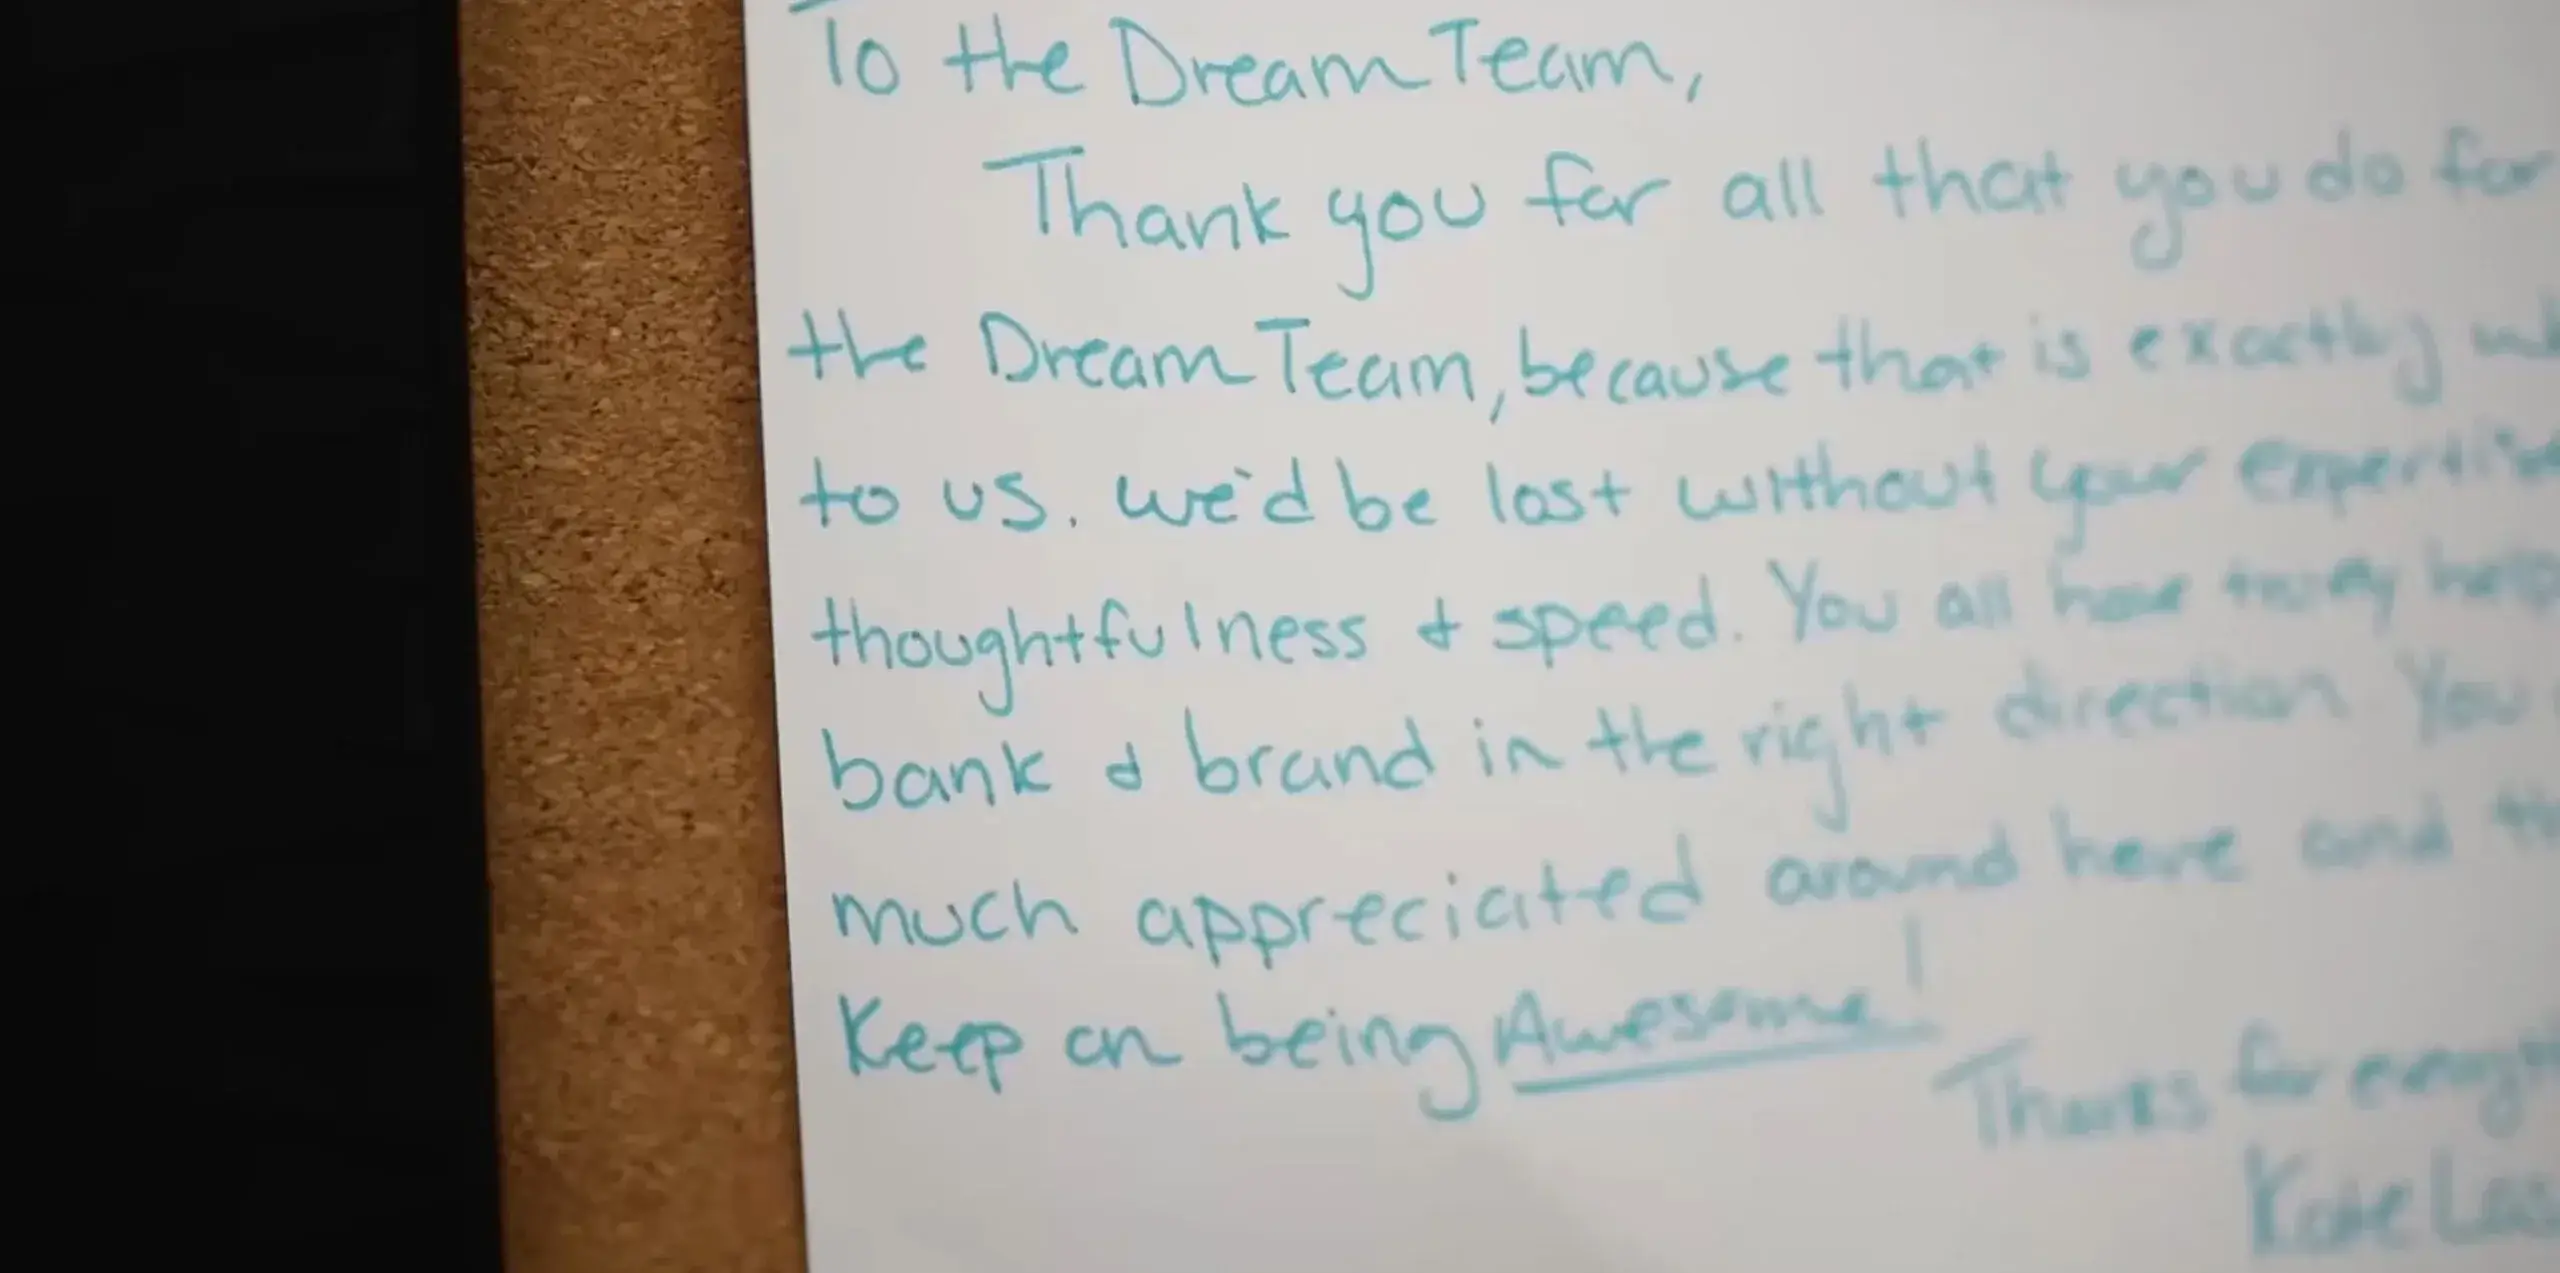 To the Dream Team,
Thank you for all that you do for
the Dream Team, because that is exactly
to us. we'd be lost without your
thoughtfulness & speed. You all have truly
bank & brand in the right direction You
much appreciated around here and
Keep on being Awesome!
Thanks for
Kate